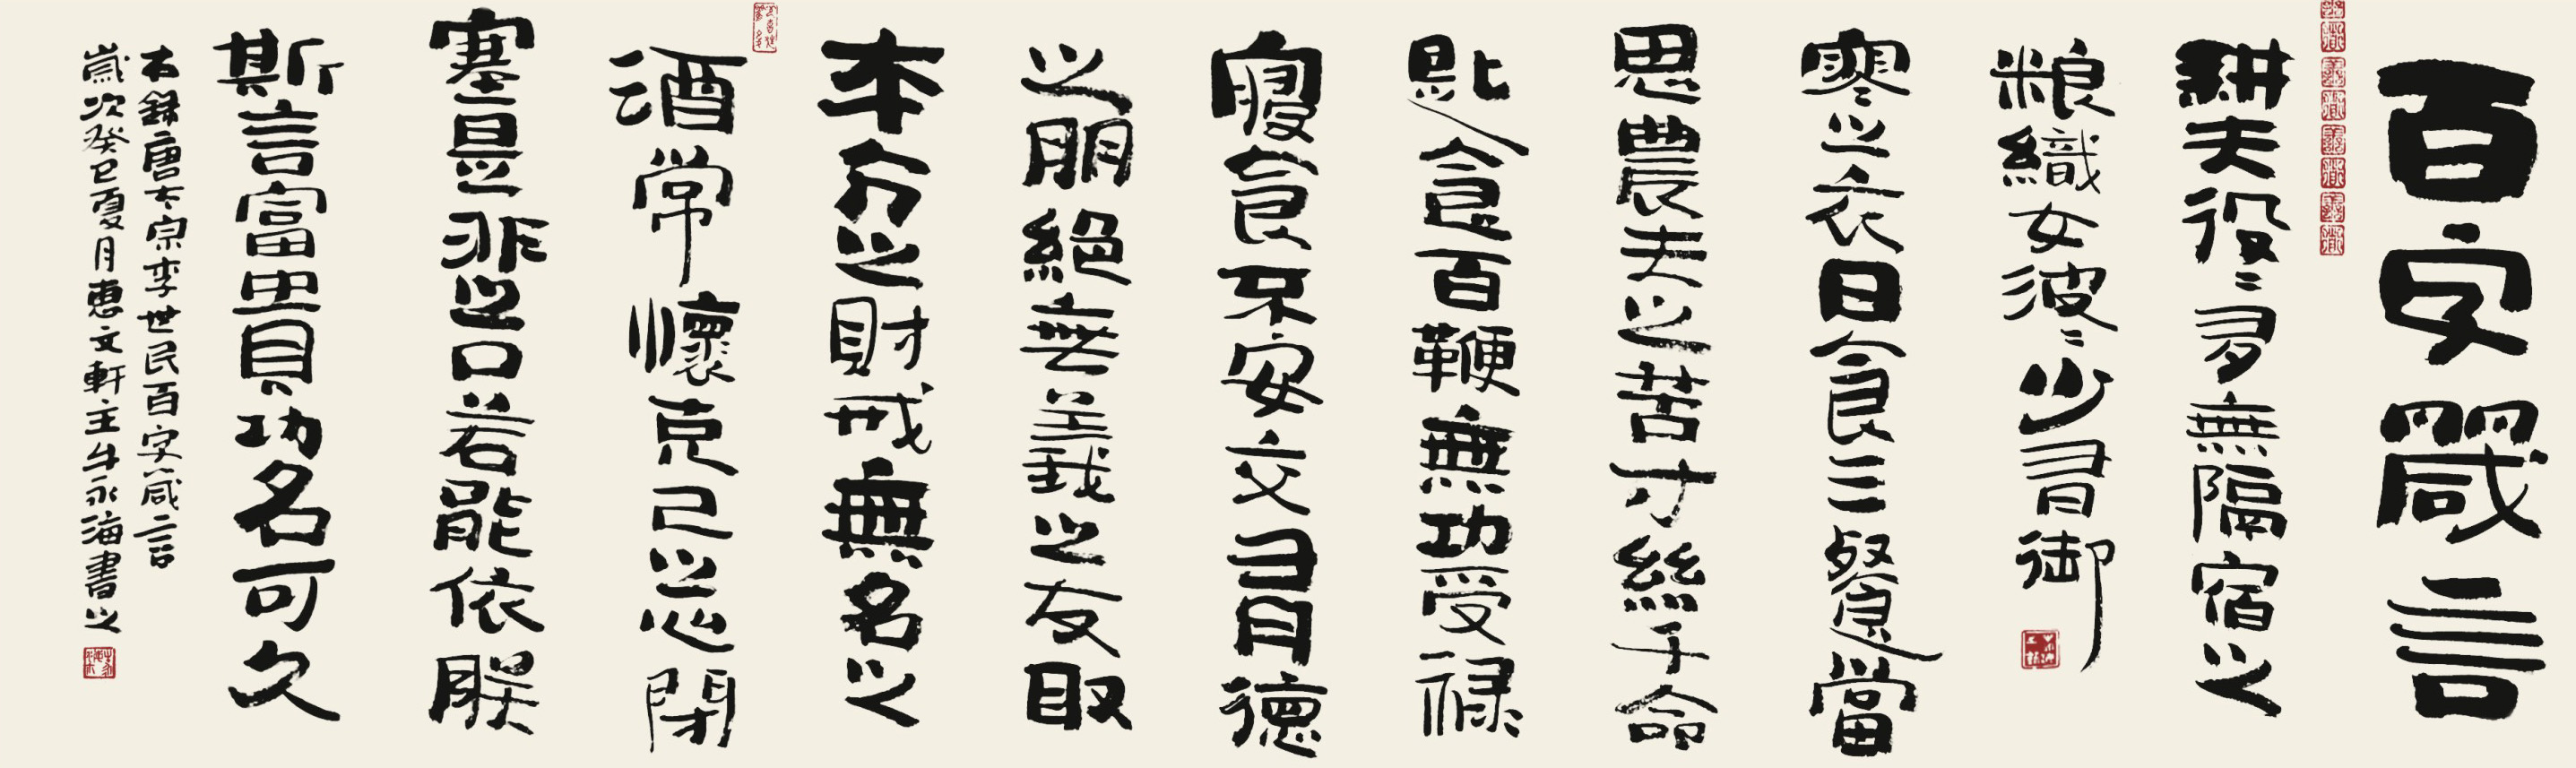 百字箴言
耕夫役〻多無隔宿之
粮織女彼〻少有御
寒之衣日食三餐當
思農夫之苦寸絲千命
匙食百鞭無功受禄
寢食不安交有德
之朋絕無義之友取
本分之財戒無名之
酒常懷克己之心閉
塞是非之口若能依朕
斯言富貴功名可久
右錄唐太宗李世民百字箴言
歲次癸巳夏月惠文軒主牛永海書之